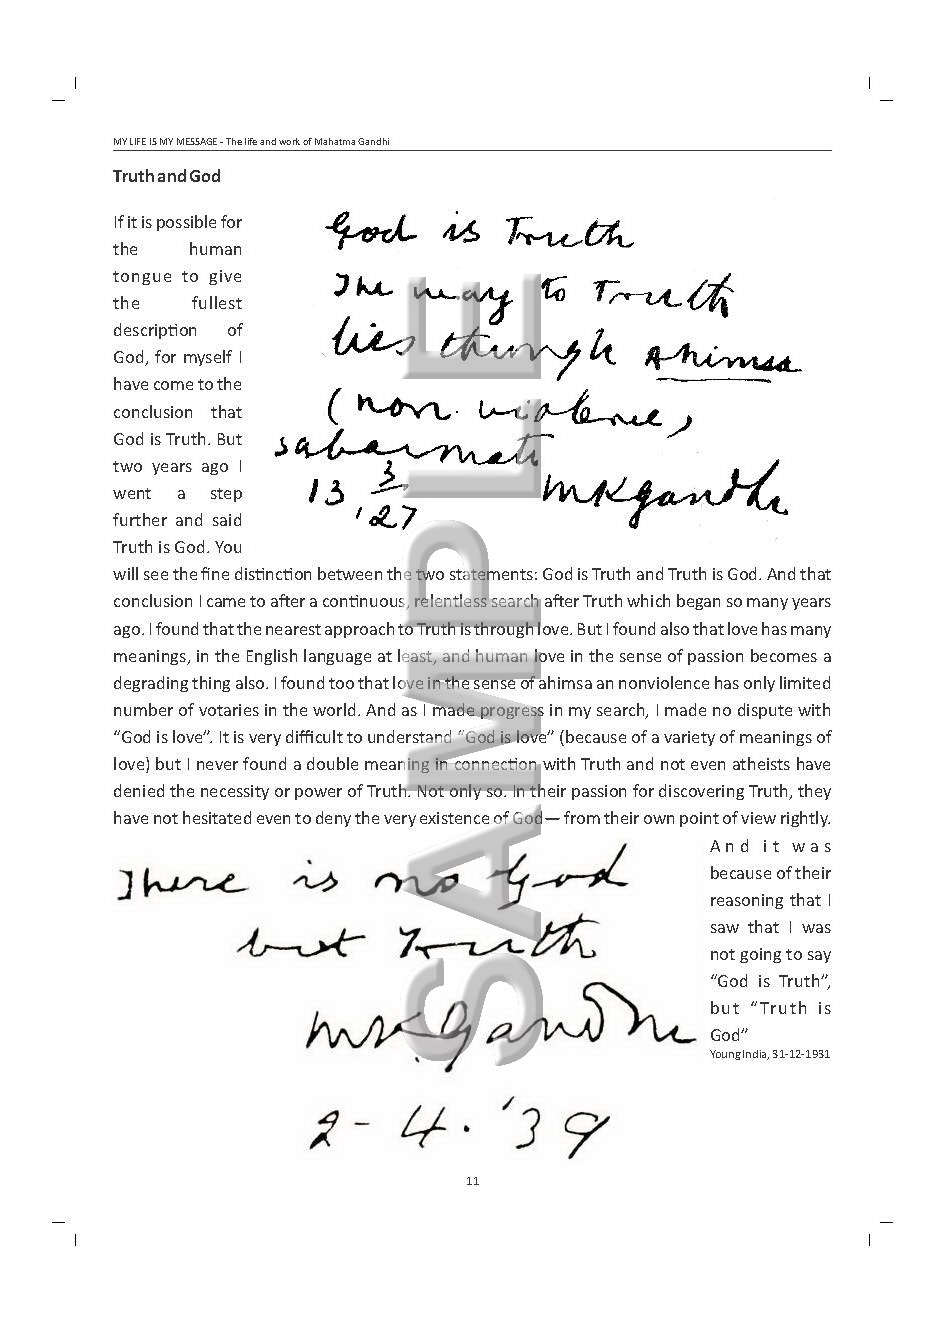 MY LIFE IS MY MESSAGE - The life and work of Mahatma Gandhi
Truth and God
If it is possible for
the human
tongue to give
the fullest
description of
God, for myself I
have come to the
conclusion that
God is Truth. But
two years ago I
went a step
further and said
Truth is God. You
God is Truth
The way to Truth
lies through Ahimsa
(non violence)
sabarmati
13 3
'27
MKGandhi
will see the fine distinction between the two statements: God is Truth and Truth is God. And that
conclusion I came to after a continuous, relentless search after Truth which began so many years
ago. I found that the nearest approach to Truth is through love. But I found also that love has many
meanings, in the English language at least, and human love in the sense of passion becomes a
degrading thing also. I found too that love in the sense of ahimsa an nonviolence has only limited
number of votaries in the world. And as I made progress in my search, I made no dispute with
“God is love”. It is very difficult to understand “God is love” (because of a variety of meanings of
love) but I never found a double meaning in connection with Truth and not even atheists have
denied the necessity or power of Truth. Not only so. In their passion for discovering Truth, they
have not hesitated even to deny the very existence of God— from their own point of view rightly.
And it was
because of their
reasoning that I
saw that I was
not going to say
“God is Truth”,
but “Truth is
God”
Young India, 31-12-1931
There is no God
but Truth
MK.Gandhi
2-4.'39
11
SAMPLE